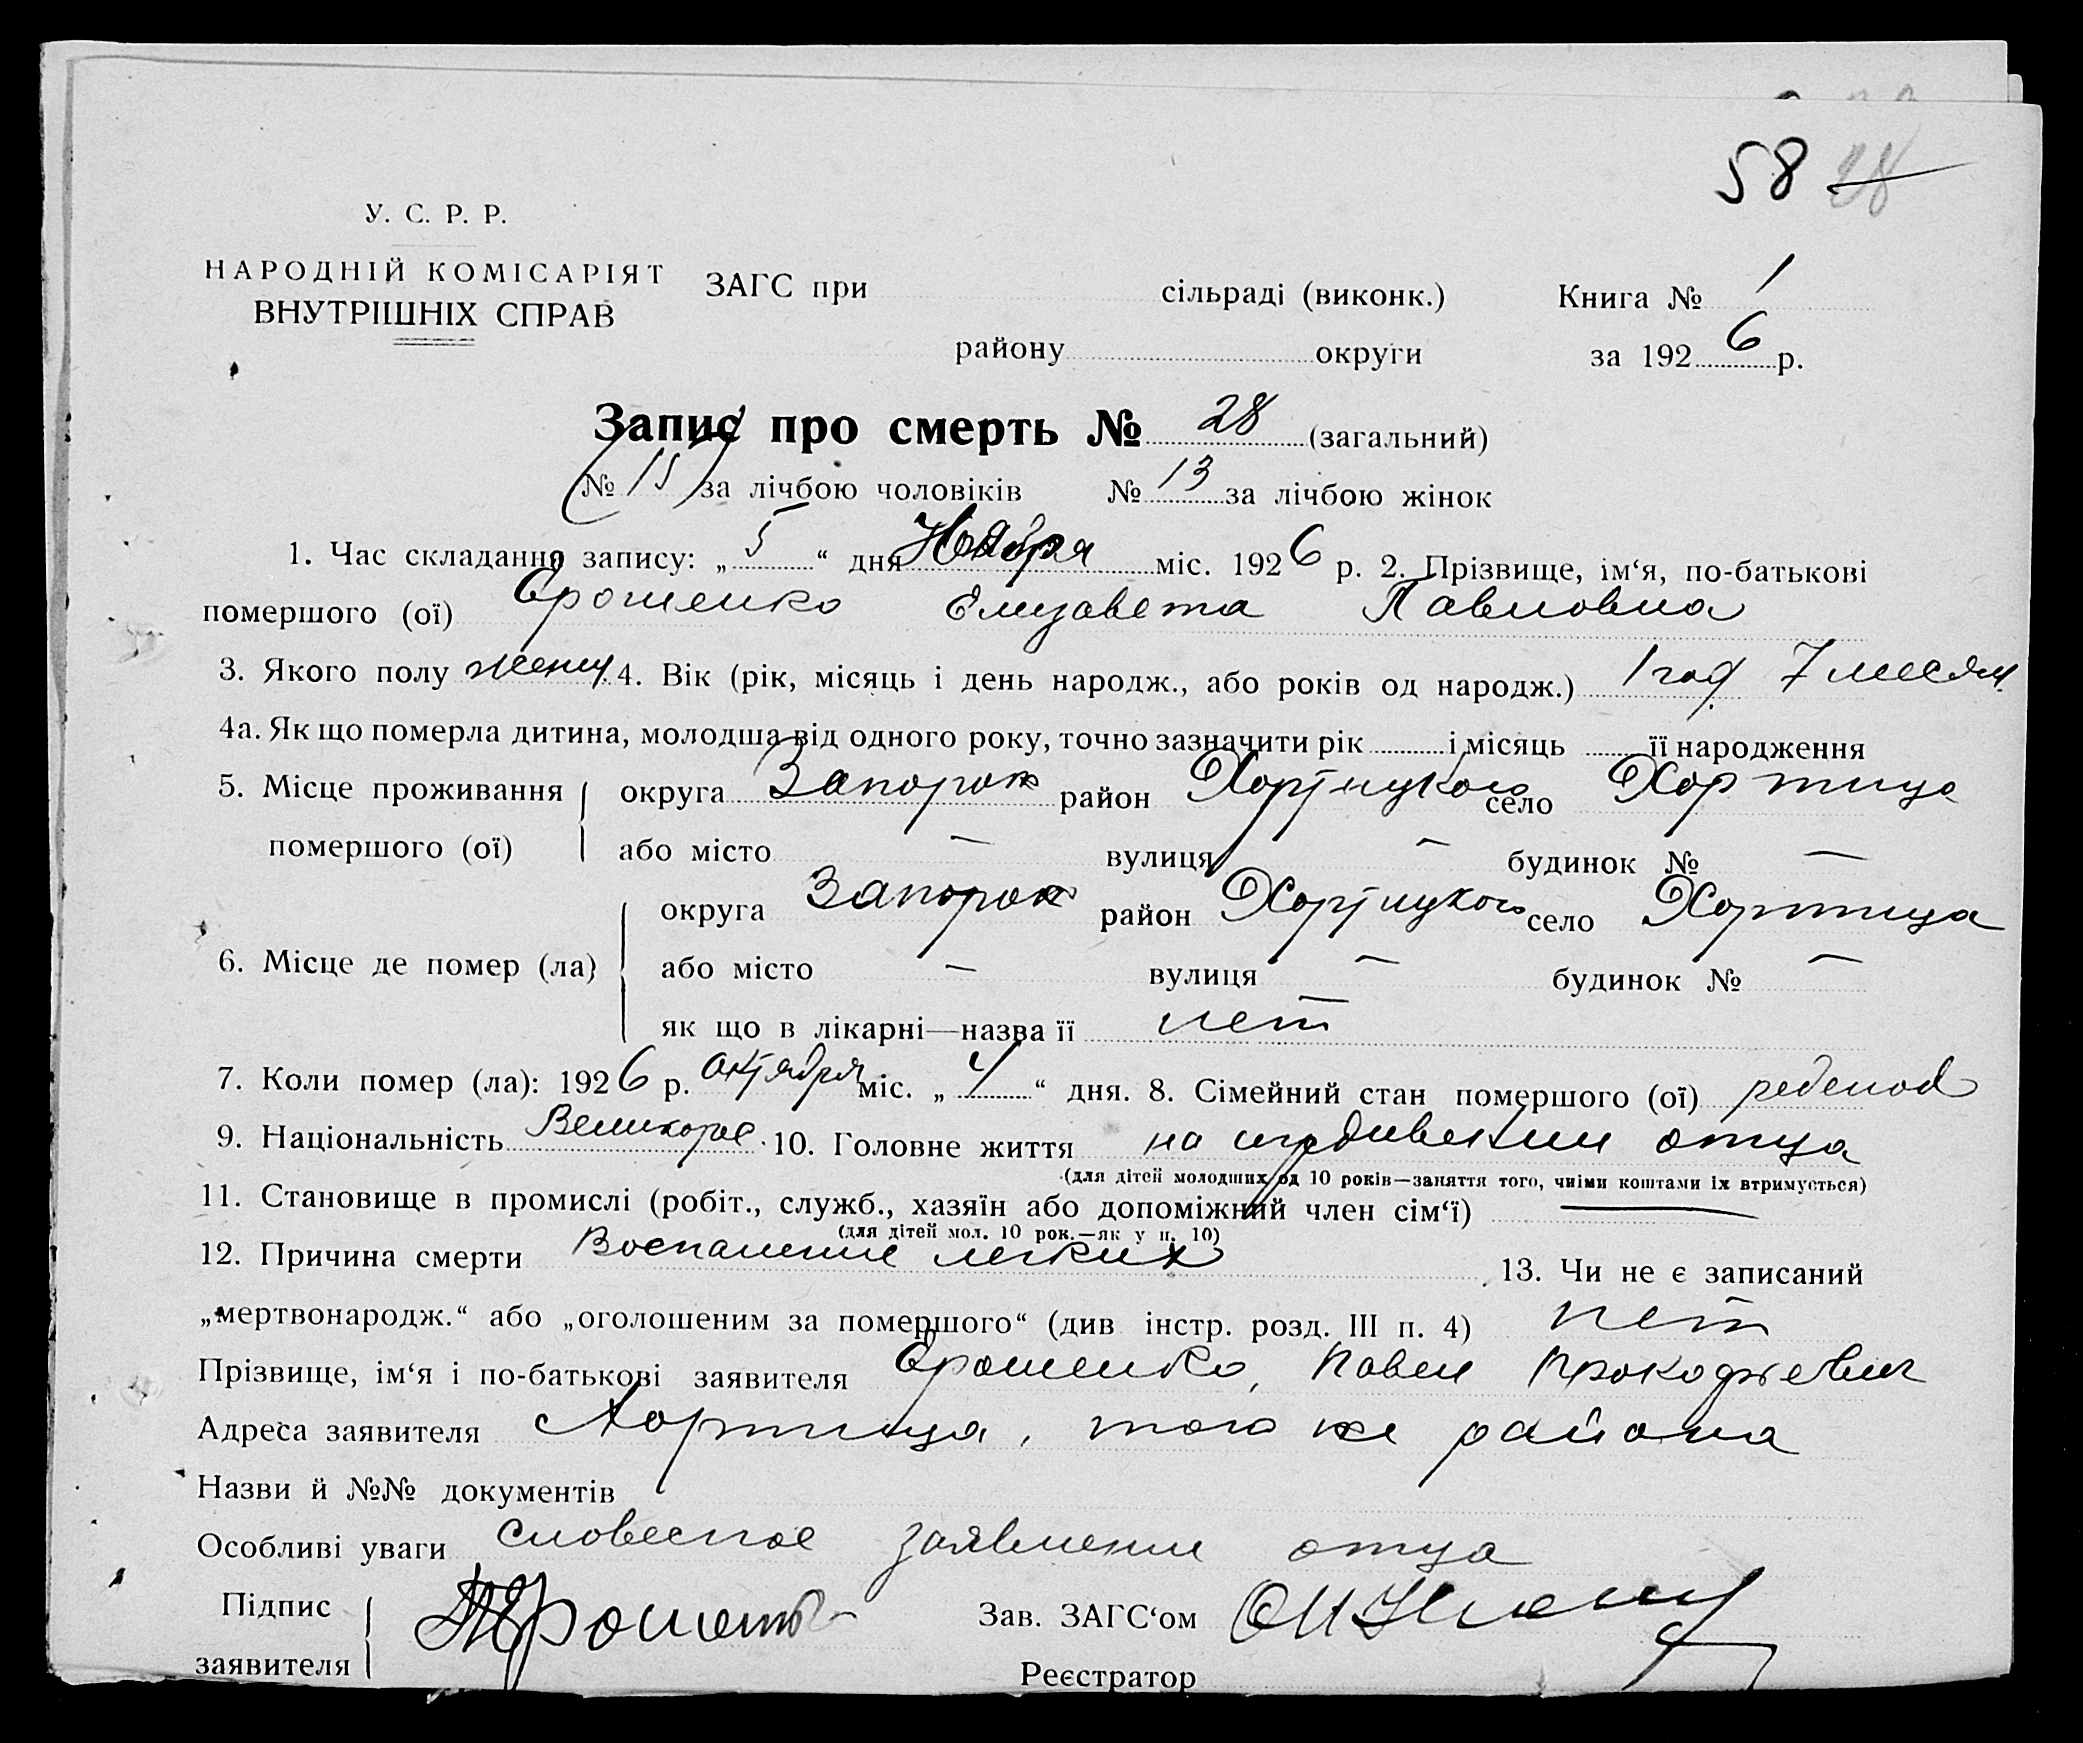 58 28
У. С. Р. Р.
НАРОДНІЙ КОМІСАРІЯТ
ВНУТРІШНІХ СПРАВ
ЗАГС при сільраді (виконк.) Книга № 1
району округи за 192 6 р.
Запис про смерть № 28 (загальний)
№ 15 за лічбою чоловіків № 13 за лічбою жінок
1. Час складання запису: „ 5 “ дня Ноября міс. 192 6 р. 2. Прізвище, ім‘я, по-батькові
помершого (ої) Ерошенко Елизавета Павловна
3. Якого полу женщ. 4. Вік (рік, місяць і день народж., або років од народж.) 1 год 7 месяц.
4а. Як що померла дитина, молодша від одного року, точно зазначити рік і місяць її народження
5. Місце проживання округа Запорож район Хортицкого село Хортица
помершого (ої) або місто — вулиця — будинок № —
округа Запорож район Хортицкого село Хортица
6. Місце де помер (ла) або місто — вулиця — будинок № —
як що в лікарні—назва її нет
7. Коли помер (ла): 192 6 р. октября міс. „ 4 “ дня. 8. Сімейний стан помершого (ої) ребенок
9. Національність Великорос. 10. Головне життя на иждивении отца
(для дітей молодших од 10 років—заняття того, чиїми коштами їх втримується)
11. Становище в промислі (робіт., служб., хазяїн або допоміжний член сім‘ї) —
(для дітей мол. 10 рок.—як у п. 10)
12. Причина смерти Воспаление легких 13. Чи не є записаний
„мертвонародж.“ або „оголошеним за помершого“ (див інстр. розд. III п. 4) нет
Прізвище, ім‘я і по-батькові заявителя Ерошенко, Павел Прокофьевич
Адреса заявителя Хортица, того же района
Назви й №№ документів
Особливі уваги Словесное заявление отца
Підпис Зав. ЗАГС‘ом
заявителя Реєстратор